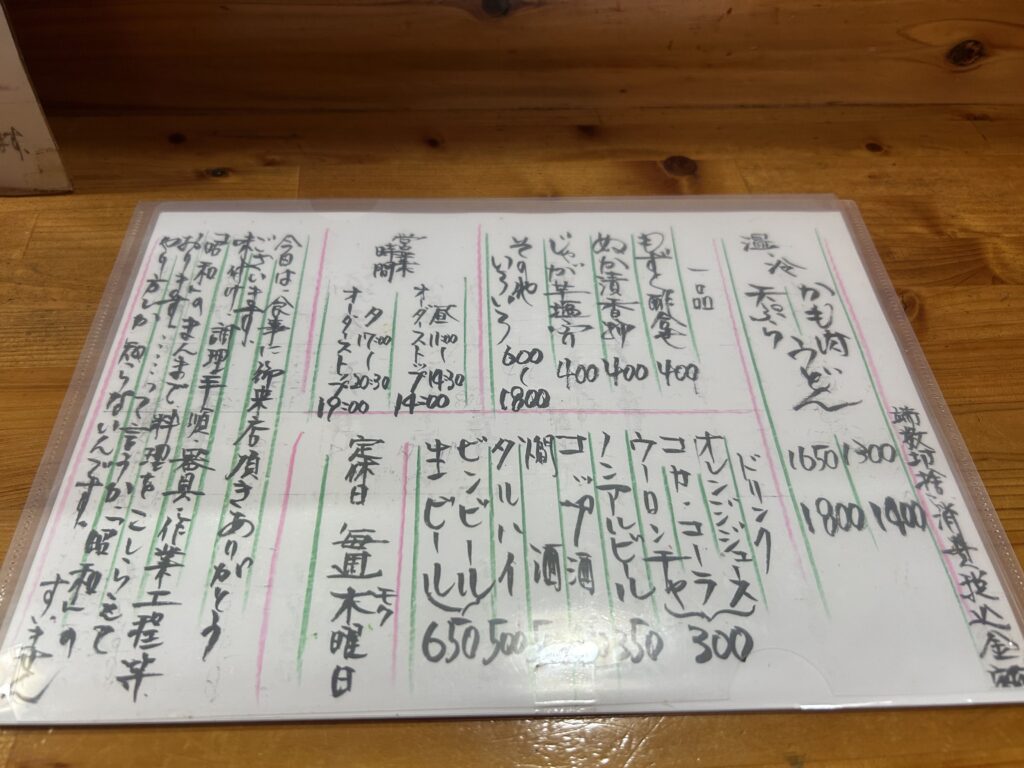 端数切捨・消費税込金額
温・冷 かも肉うどん 1300 1400
天ぷら 1650 1800
一品
もずく酢 400
ぬか漬香物 400
じゃが芋塩 400
その他いろいろ 600〜1800
営業時間
昼 11:00〜14:30
オーダーストップ 14:00
夕 17:00〜20:30
オーダーストップ 19:00
ドリンク
オレンジジュース
コカ・コーラ
ウーロンチャ
300
ノンアルビール 350
コップ酒
燗酒
タルハイ 500
ビンビール
生ビール
650
定休日 毎週木曜日
モク
今日は、食事に御来店頂きありがとう
ございます。
味付け、調理手順、器具、作業工程等
「昭和」のまんまで料理をこしらえて
おります。……って言うか「昭和」の
やり方しか知らないんです。
すいません